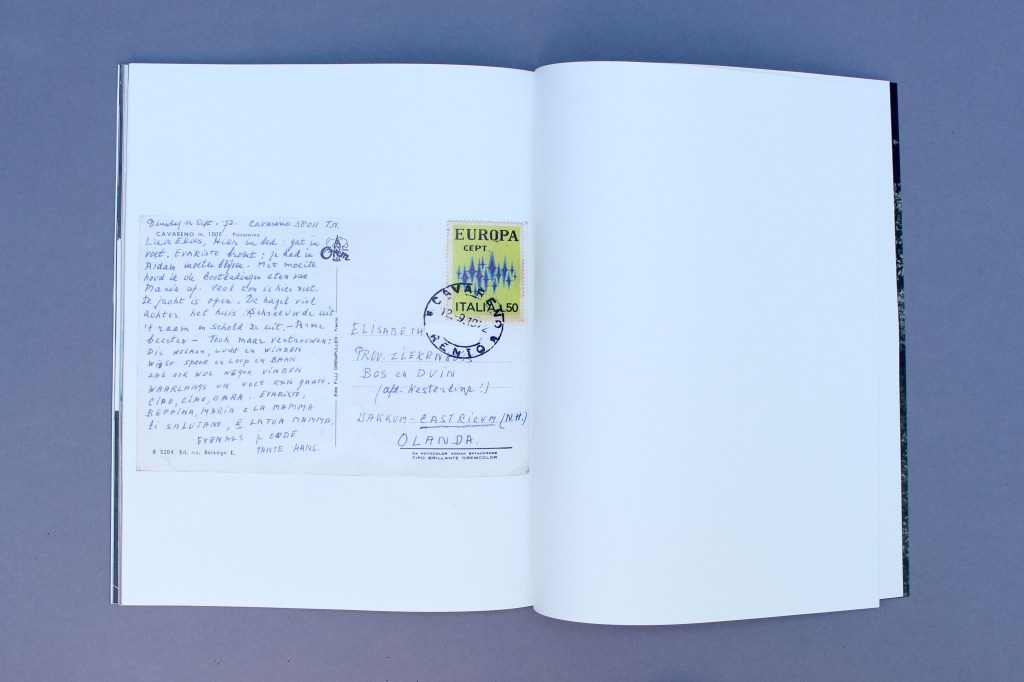 Dinsdag 12 Sept. 72. CAVARENO 38011 T.N.
CAVARENO m. 1000 - Panorama
Lieve ELIES, Hier in bed: gat in
voet. EVARISTO broket: je had in
Aidan moeten blijven. Met moeite
houd ik de Beethadinger eten van
Maria af. Veel zon is hier niet.
De jacht is open. De hagel viel
achter het huis. Schreeuwde uit
't raam en schold ze uit. - Arme
beesten - Toch maar vertrouwen:
DIE WOLKEN, LUCHT EN WINDEN
WIJST SPOOR EN LOOP EN BAAN
ZAL OOK WEL WEGEN VINDEN
WAARLANGS UW VOET KAN GAAN.
CIAO, CIAO, CARA. EVARISTO,
BEPPINA, MARIA E LA MAMMA
ti SALUTANO, E LA TUA MAMMA,
EVENALS je OUDE
TANTE HANS.
B 5204 Ed. ris. Bérzaga E.
Orem
EUROPA
CEPT
ITALIA L50
CAVARENO
12.-9.1972
TRENTO
ELISABETH
PROV. ZIEKENHUIS
BOS en DUIN
DAKKUM - CASTRICUM (N.H.)
OLANDA.
DA FOTOCOLOR KODAK EKTACHROME
TIPO BRILLANTE OREMCOLOR